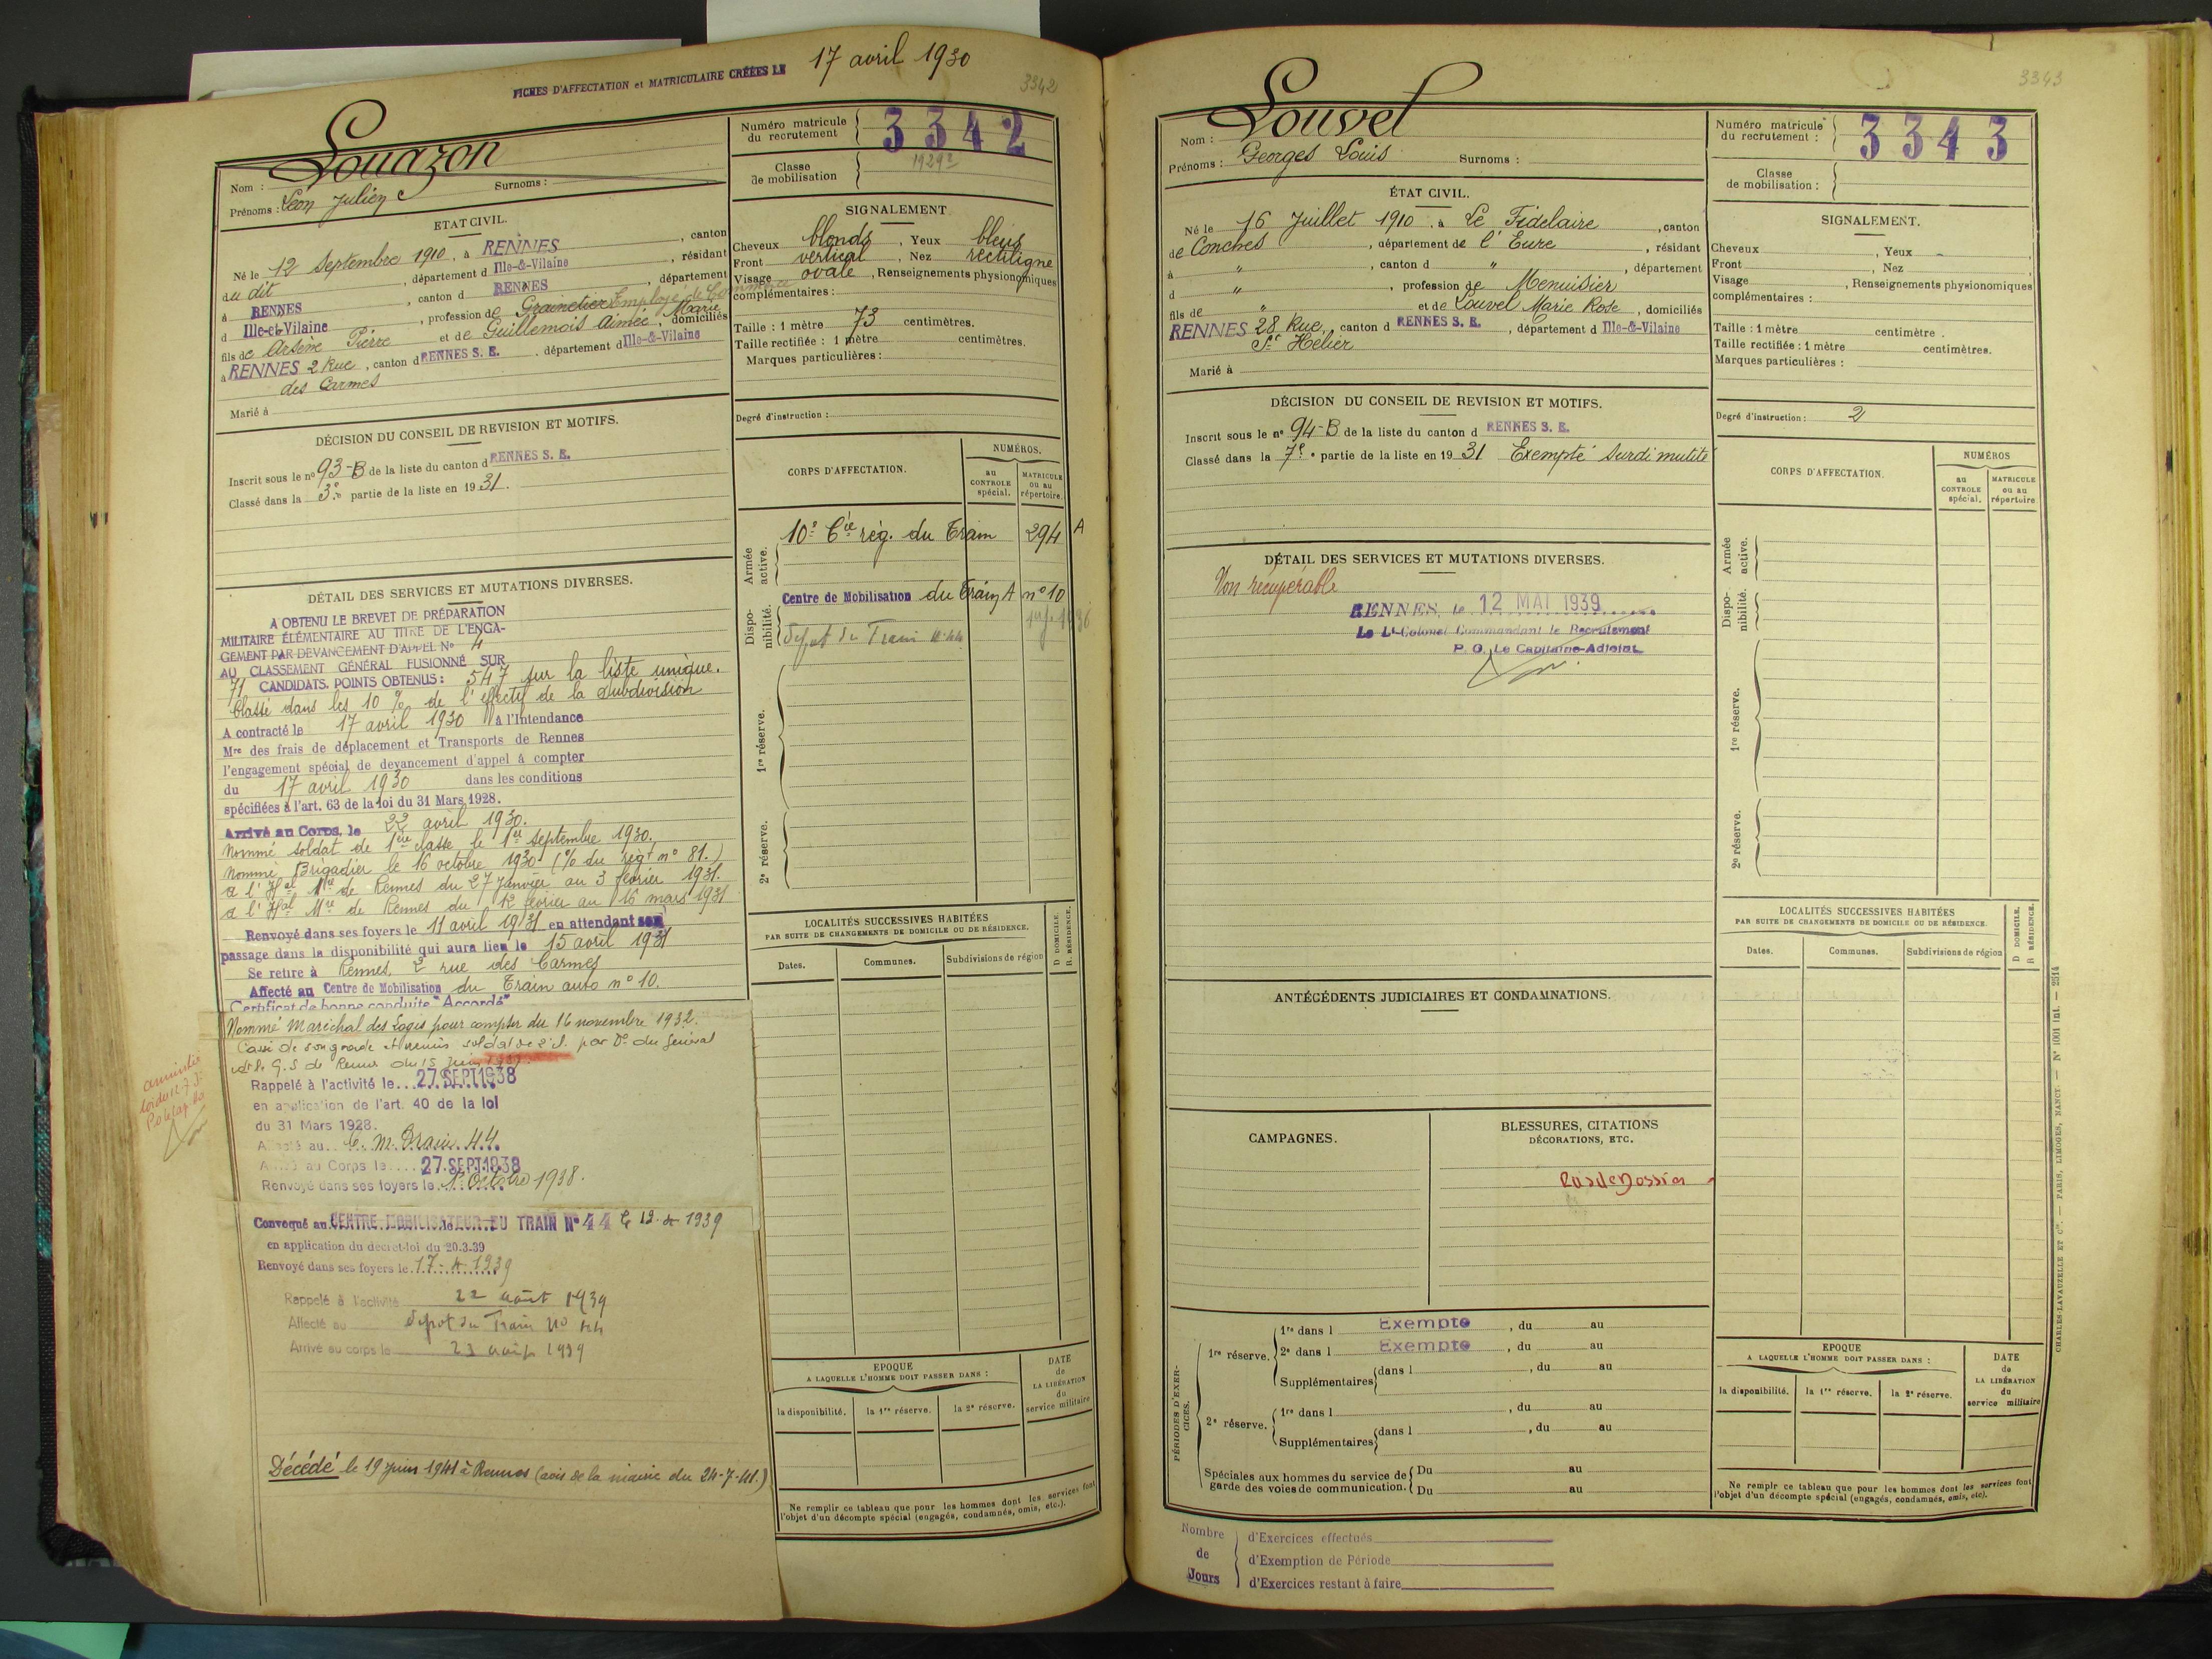 FICHES D'AFFECTATION et MATRICULAIRE CRÉÉES LE 17 avril 1930
3342
Louazon
Nom :
Prénoms : Léon Julien Surnoms :
Numéro matricule du recrutement 3342
Classe de mobilisation 1929
ETAT CIVIL.
Né le 12 Septembre 1910, à RENNES, canton
du dit, département d Ille-&-Vilaine, résidant
à RENNES, canton d RENNES, département
d Ille-et-Vilaine, profession de Grainetier Employé de Commerce
fils de Arsène Pierre et de Guillemois Aimée, Marie, domiciliés
à RENNES 2 Rue, canton d RENNES S. E. département d Ille-&-Vilaine
des Carmes
Marié à
SIGNALEMENT
Cheveux blonds, Yeux bleus
Front vertical, Nez rectiligne
Visage ovale, Renseignements physionomiques
complémentaires :
Taille : 1 mètre 73 centimètres.
Taille rectifiée : 1 mètre centimètres.
Marques particulières :
Degré d'instruction :
DÉCISION DU CONSEIL DE REVISION ET MOTIFS.
Inscrit sous le n° 93-B de la liste du canton d RENNES S. E.
Classé dans la 3e partie de la liste en 1931.
CORPS D'AFFECTATION.
NUMÉROS.
au CONTROLE spécial.
MATRICULE ou au répertoire.
Armée active.
10e Cie rég. du Train 294 A
Disponibilité.
Centre de Mobilisation du Train A n° 10
Dépot du Train n° 44
1re réserve.
2e réserve.
DÉTAIL DES SERVICES ET MUTATIONS DIVERSES.
A OBTENU LE BREVET DE PRÉPARATION
MILITAIRE ÉLÉMENTAIRE AU TITRE DE L'ENGA-
GEMENT PAR DEVANCEMENT D'APPEL N° 4
AU CLASSEMENT GÉNÉRAL FUSIONNÉ SUR
71 CANDIDATS. POINTS OBTENUS : 547 sur la liste unique.
Classé dans les 10 % de l'effectif de la Subdivision
A contracté le 17 avril 1930 à l'Intendance
Mre des frais de déplacement et Transports de Rennes
l'engagement spécial de devancement d'appel à compter
du 17 avril 1930 dans les conditions
spécifiées à l'art. 63 de la loi du 31 Mars 1928.
Arrivé au Corps, le 22 avril 1930.
Nommé soldat de 1ère classe le 1er septembre 1930.
Nommé Brigadier le 16 octobre 1930 (% du régt n° 81.)
a l'Hal Mre de Rennes du 27 Janvier au 3 février 1931.
a l'Hal Mre de Rennes du 12 février au 16 mars 1931
Renvoyé dans ses foyers le 11 avril 1931 en attendant son
passage dans la disponibilité qui aura lieu le 15 avril 1931
Se retire à Rennes, 2 rue des Carmes
Affecté au Centre de Mobilisation du Train auto n° 10.
Certificat de bonne conduite "Accordé"
Nommé Maréchal des Logis pour compter du 16 novembre 1932.
Cassé de son grade et remis soldat de 2e cl. par Dn du Général
G. S de Rennes du 15 juin
Rappelé à l'activité le 27 SEPT 1938
en application de l'art. 40 de la loi
du 31 Mars 1928.
Affecté au C. M. Train 44.
Arrivé au Corps le 27 SEPT 1938
Renvoyé dans ses foyers le 1er Octobre 1938.
Convoqué au CENTRE MOBILISATEUR DU TRAIN N° 44 le 12-4-1939
en application du décret-loi du 20.3.39
Renvoyé dans ses foyers le 17-4-1939
Rappelé à l'activité 22 août 1939
Affecté au Dépot du Train n° 44
Arrivé au corps le 23 août 1939
Décédé le 19 juin 1941 à Rennes (avis de la mairie du 24-7-41.)
LOCALITÉS SUCCESSIVES HABITÉES
PAR SUITE DE CHANGEMENTS DE DOMICILE OU DE RÉSIDENCE.
D DOMICILE.
R RÉSIDENCE.
Dates.
Communes.
Subdivisions de région
EPOQUE
A LAQUELLE L'HOMME DOIT PASSER DANS :
DATE de LA LIBÉRATION du service militaire
la disponibilité.
la 1re réserve.
la 2e réserve.
Ne remplir ce tableau que pour les hommes dont les services font
l'objet d'un décompte spécial (engagés, condamnés, omis, etc.).
3343
Louvel
Nom :
Prénoms : Georges Louis Surnoms :
Numéro matricule du recrutement : 3343
Classe de mobilisation :
ÉTAT CIVIL.
Né le 16 Juillet 1910, à Le Fidelaire, canton
de Conches, département de l'Eure, résidant
à ", canton d ", département
d ", profession de Menuisier
fils de " et de Louvel Marie Rose, domiciliés
RENNES 28 Rue, canton d RENNES S. E., département d Ille-&-Vilaine
St Helier
Marié à
SIGNALEMENT.
Cheveux, Yeux
Front, Nez
Visage, Renseignements physionomiques
complémentaires :
Taille : 1 mètre centimètre.
Taille rectifiée : 1 mètre centimètres.
Marques particulières :
Degré d'instruction : 2
DÉCISION DU CONSEIL DE REVISION ET MOTIFS.
Inscrit sous le n° 94-B de la liste du canton d RENNES S. E.
Classé dans la 7e partie de la liste en 1931 Exempté Surdi mutité
CORPS D'AFFECTATION.
NUMÉROS
au CONTROLE spécial.
MATRICULE ou au répertoire
Armée active.
Disponibilité.
1re réserve.
2e réserve.
DÉTAIL DES SERVICES ET MUTATIONS DIVERSES.
Non récupérable
RENNES, le 12 MAI 1939
Le Lt-Colonel Commandant le Recrutement
P. O. Le Capitaine-Adjoint
LOCALITÉS SUCCESSIVES HABITÉES
PAR SUITE DE CHANGEMENTS DE DOMICILE OU DE RÉSIDENCE.
D DOMICILE.
R RÉSIDENCE.
Dates.
Communes.
Subdivisions de région
ANTÉCÉDENTS JUDICIAIRES ET CONDAMNATIONS.
CAMPAGNES.
BLESSURES, CITATIONS
DÉCORATIONS, ETC.
Pas de Dossier
PÉRIODES D'EXERCICES.
1re réserve.
1re dans l Exempte, du au
2e dans l Exempte, du au
Supplémentaires dans l, du au
2e réserve.
1re dans l, du au
Supplémentaires dans l, du au
Spéciales aux hommes du service de garde des voies de communication.
Du au
Du au
EPOQUE
A LAQUELLE L'HOMME DOIT PASSER DANS :
DATE de LA LIBÉRATION du service militaire
la disponibilité.
la 1re réserve.
la 2e réserve.
Ne remplir ce tableau que pour les hommes dont les services font
l'objet d'un décompte spécial (engagés, condamnés, omis, etc).
Nombre de Jours
d'Exercices effectués
d'Exemption de Période
d'Exercices restant à faire
CHARLES-LAVAUZELLE ET Cie. — PARIS, LIMOGES, NANCY. — N° 1001 int. — 2514